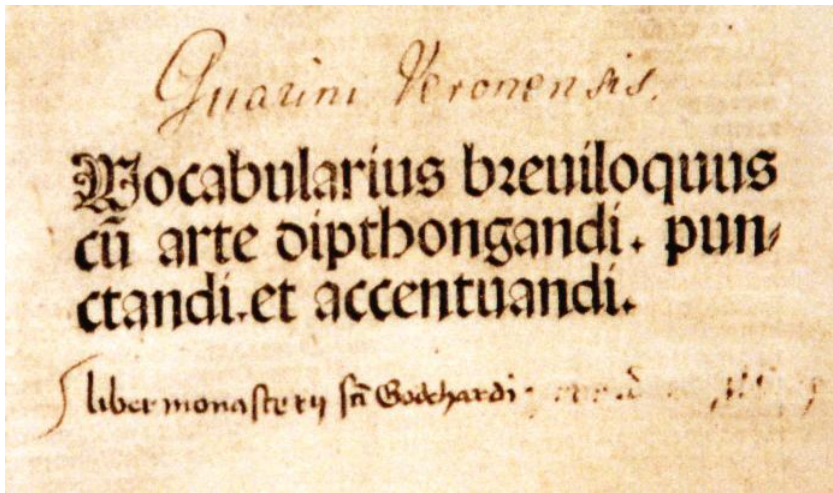 Guarini Veronensis.
Vocabularius breuiloquus
cũ arte dipthongandi. pun-
ctandi. et accentuandi.
liber monasterij sct̃i Godehardi